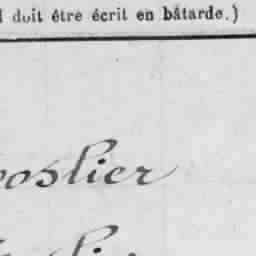 doit être écrit en bâtarde.)
oslier